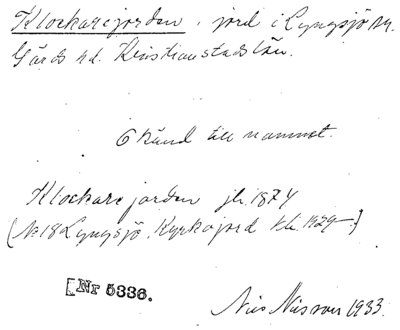 Klockarejorden, jord i Lyngsjö sn.
Gärds hd. Kristianstads län.
Okänd till namnet.
Klockarejorden jb. 1874
(N:o 18 Lyngsjö, Kyrkojord tk. 1929.]
[Nr 5336.
Nils Nilsson 1933.